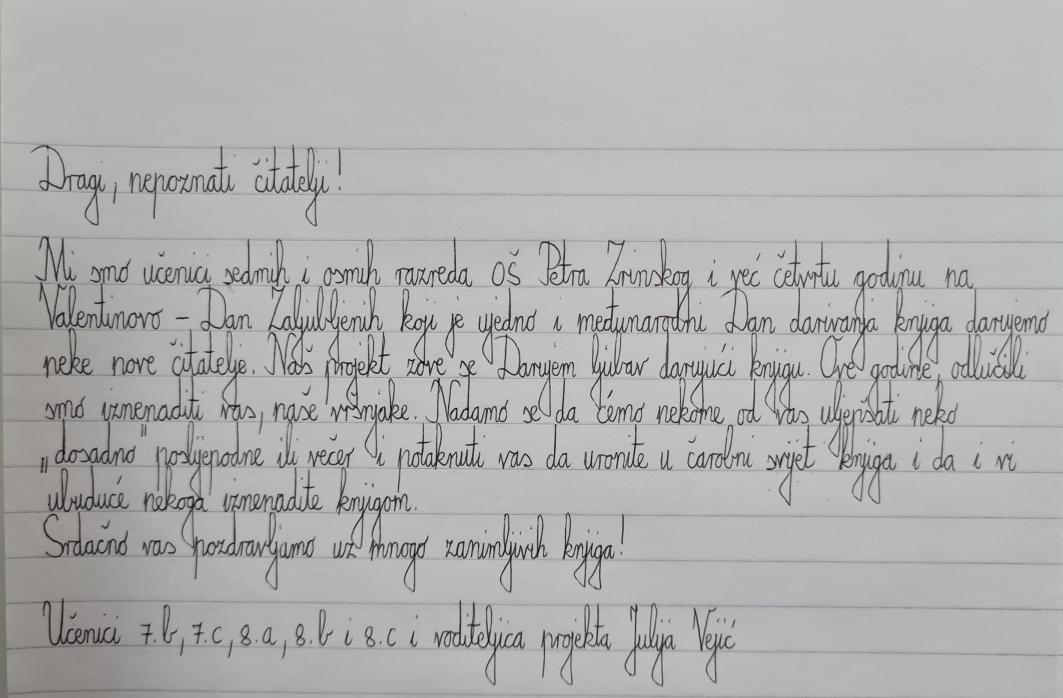 Dragi, nepoznati čitatelji!
Mi smo učenici sedmih i osmih razreda OŠ Petra Zrinskog i već četvrtu godinu na
Valentinovo - Dan Zaljubljenih koji je ujedno i međunarodni Dan darivanja knjiga darujemo
neke nove čitatelje. Naš projekt zove se Darujem ljubav darujući knjigu. Ove godine, odlučili
smo iznenaditi vas, naše vršnjake. Nadamo se da ćemo nekome od vas uljepšati neko
„dosadno" poslijepodne ili večer i potaknuti vas da uronite u čarobni svijet knjiga i da i vi
ubuduće nekoga iznenadite knjigom.
Srdačno vas pozdravljamo uz mnogo zanimljivih knjiga!
Učenici 7.b, 7.c, 8.a, 8.b i 8.c i voditeljica projekta Julija Vejić